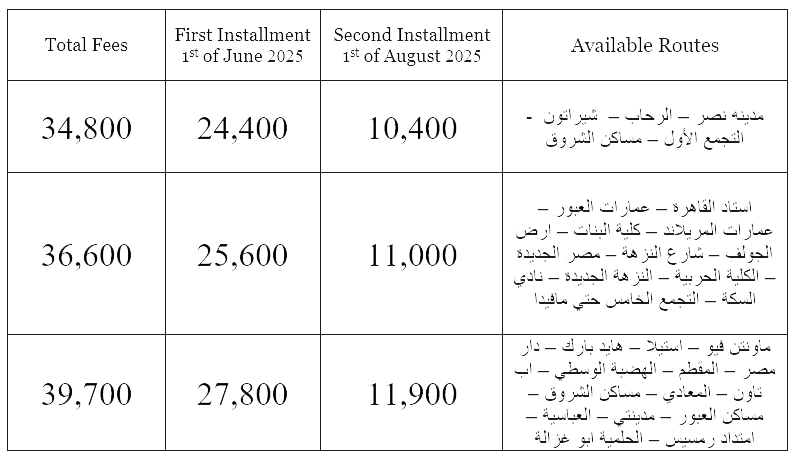 Total Fees
First Installment
1st of June 2025
Second Installment
1st of August 2025
Available Routes
34,800
24,400
10,400
مدينه نصر – الرحاب – شيراتون -
التجمع الأول – مساكن الشروق
36,600
25,600
11,000
استاد القاهرة – عمارات العبور –
عمارات الميريلاند – كلية البنات – ارض
الجولف – شارع النزهة – مصر الجديدة
– الكلية الحربية – النزهة الجديدة – نادي
السكة – التجمع الخامس حتي مافيدا
39,700
27,800
11,900
ماونتن فيو – استيلا – هايد بارك – دار
مصر – المقطم – الهضبة الوسطي – اب
تاون – المعادي – مساكن الشروق –
مساكن العبور – مدينتي – العباسية –
امتداد رمسيس – الحلمية ابو غزالة